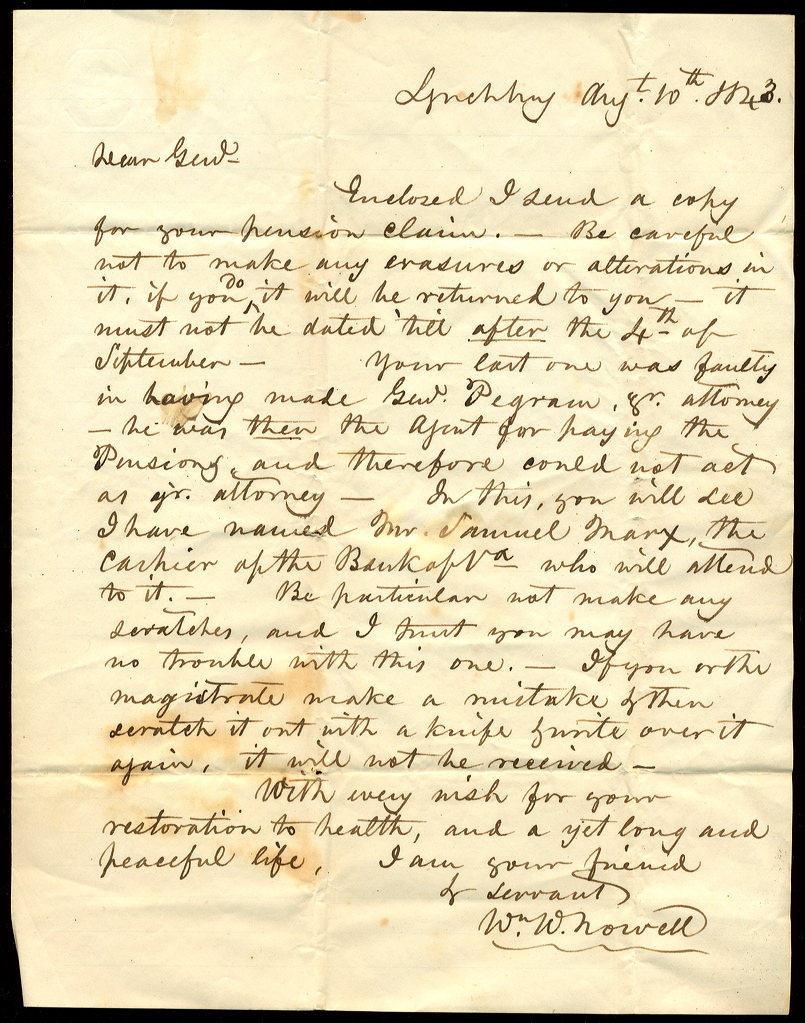 Lynchburg Augt. 10th. 1843.
Dear Genl-
Enclosed I send a copy
for your pension claim. — Be careful
not to make any erasures or alterations in
it, if you do, it will be returned to you — it
must not be dated 'till after the 4th of
September — Your last one was faulty
in having made Genl. Pegram, yr. attorney
— he was then the Agent for paying the
Pensions, and therefore could not act
as yr. attorney — In this, you will see
I have named Mr. Samuel Marx, the
Cashier of the Bank of Va who will attend
to it. — Be particular not make any
scratches, and I trust you may have
no trouble with this one. — If you or the
magistrate make a mistake & then
scratch it out with a knife & write over it
again, it will not be received —
With every wish for your
restoration to health, and a yet long and
peaceful life, I am your friend
& servant
Wm. W. Norvell